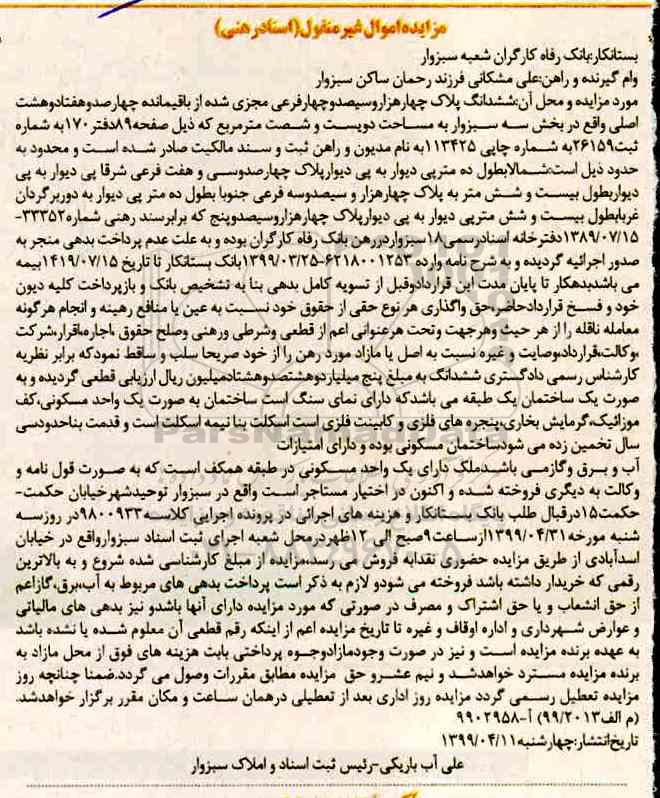 مزایده اموال غیر منقول(اسناد رهنی)
بستانکار:بانک رفاه کارگران شعبه سبزوار
وام گیرنده و راهن:علی مشکانی فرزند رحمان ساکن سبزوار
مورد مزایده و محل آن:ششدانگ پلاک چهارهزاروسیصدوچهارفرعی مجزی شده از باقیمانده چهارصدوهفتادوهشت
اصلی واقع در بخش سه سبزوار به مساحت دویست و شصت مترمربع که ذیل صفحه۸۹دفتر۱۷۰به شماره
ثبت۲۶۱۵۹به شماره چاپی ۱۱۳۴۲۵به نام مدیون و راهن ثبت و سند مالکیت صادر شده است و محدود به
حدود ذیل است:شمالابطول ده مترپی دیوار به پی دیوارپلاک چهارصدوسی و هفت فرعی شرقا پی دیوار به پی
دیواربطول بیست و شش متر به پلاک چهارهزار و سیصدوسه فرعی جنوبا بطول ده متر پی دیوار به دوربرگردان
غربابطول بیست و شش مترپی دیوار به پی دیوارپلاک چهارهزاروسیصدوپنج که برابرسند رهنی شماره۳۳۳۵۲-
۱۳۸۹/۰۷/۱۵دفترخانه اسنادرسمی۱۸سبزواردررهن بانک رفاه کارگران بوده و به علت عدم پرداخت بدهی منجر به
صدور اجرائیه گردیده و به شرح نامه وارده ۶۲۱۸۰۰۱۲۵۳-۱۳۹۹/۰۳/۲۵بانک بستانکار تا تاریخ ۱۴۱۹/۰۷/۱۵بیمه
می باشدبدهکار تا پایان مدت این قراردادوقبل از تسویه کامل بدهی بنا به تشخیص بانک و بازپرداخت کلیه دیون
خود و فسخ قراردادحاضر،حق واگذاری هر نوع حقی از حقوق خود نسبت به عین یا منافع رهینه و انجام هرگونه
معامله ناقله را از هر حیث وهرجهت وتحت هرعنوانی اعم از قطعی وشرطی ورهنی وصلح حقوق ،اجاره،اقرار،شرکت
،وکالت،قرارداد،وصایت و غیره نسبت به اصل یا مازاد مورد رهن را از خود صریحا سلب و ساقط نمودکه برابر نظریه
کارشناس رسمی دادگستری ششدانگ به مبلغ پنج میلیاردوهشتصدوهشتادمیلیون ریال ارزیابی قطعی گردیده و به
صورت یک ساختمان یک طبقه می باشدکه دارای نمای سنگ است ساختمان به صورت یک واحد مسکونی،کف
موزائیک،گرمایش بخاری،پنجره های فلزی و کابینت فلزی است اسکلت بنا نیمه اسکلت است و قدمت بناحدودسی
سال تخمین زده می شودساختمان مسکونی بوده و دارای امتیازات
آب و برق وگازمی باشدملک دارای یک واحد مسکونی در طبقه همکف است که به صورت قول نامه و
وکالت به دیگری فروخته شده و اکنون در اختیار مستاجر است واقع در سبزوار توحیدشهرخیابان حکمت-
حکمت۱۵درقبال طلب بانک بستانکار و هزینه های اجرائی در پرونده اجرایی کلاسه۹۸۰۰۹۳۳در روزسه
شنبه مورخه ۱۳۹۹/۰۴/۳۱ازساعت۹صبح الی ۱۲ظهردرمحل شعبه اجرای ثبت اسناد سبزوارواقع در خیابان
اسدآبادی از طریق مزایده حضوری نقدابه فروش می رسد،مزایده از مبلغ کارشناسی شده شروع و به بالاترین
رقمی که خریدار داشته باشد فروخته می شودو لازم به ذکر است پرداخت بدهی های مربوط به آب،برق،گازاعم
از حق انشعاب و یا حق اشتراک و مصرف در صورتی که مورد مزایده دارای آنها باشدو نیز بدهی های مالیاتی
و عوارض شهرداری و اداره اوقاف و غیره تا تاریخ مزایده اعم از اینکه رقم قطعی آن معلوم شده یا نشده باشد
به عهده برنده مزایده است و نیز در صورت وجودمازادوجوه پرداختی بابت هزینه های فوق از محل مازاد به
برنده مزایده مسترد خواهدشد و نیم عشرو حق مزایده مطابق مقررات وصول می گردد.ضمنا چنانچه روز
مزایده تعطیل رسمی گردد مزایده روز اداری بعد از تعطیلی درهمان ساعت و مکان مقرر برگزار خواهدشد.
(م الف۹۹/۲۰۱۳) آ-۹۹۰۲۹۵۸
تاریخ انتشار:چهارشنبه۱۳۹۹/۰۴/۱۱
علی آب باریکی-رئیس ثبت اسناد و املاک سبزوار